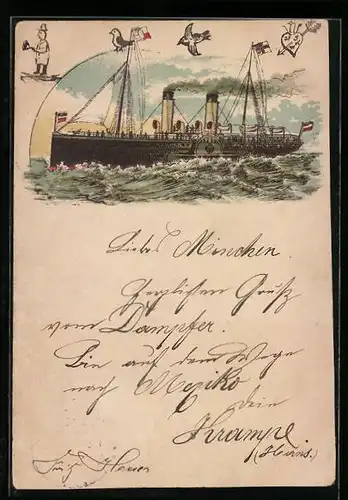 Liebes Minchen.
Herzlichen Gruß
vom Dampfer.
Bin auf dem Wege
nach Mexiko
dein
Krampe
(Heins.)